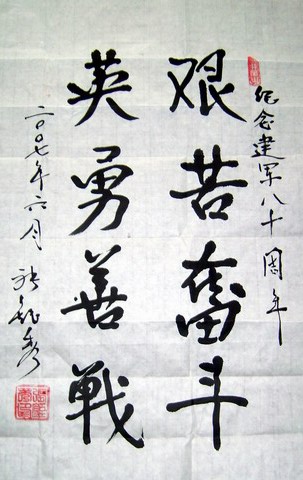 纪念建军八十周年
艰苦奮斗
英勇善戦
二〇〇七年六月